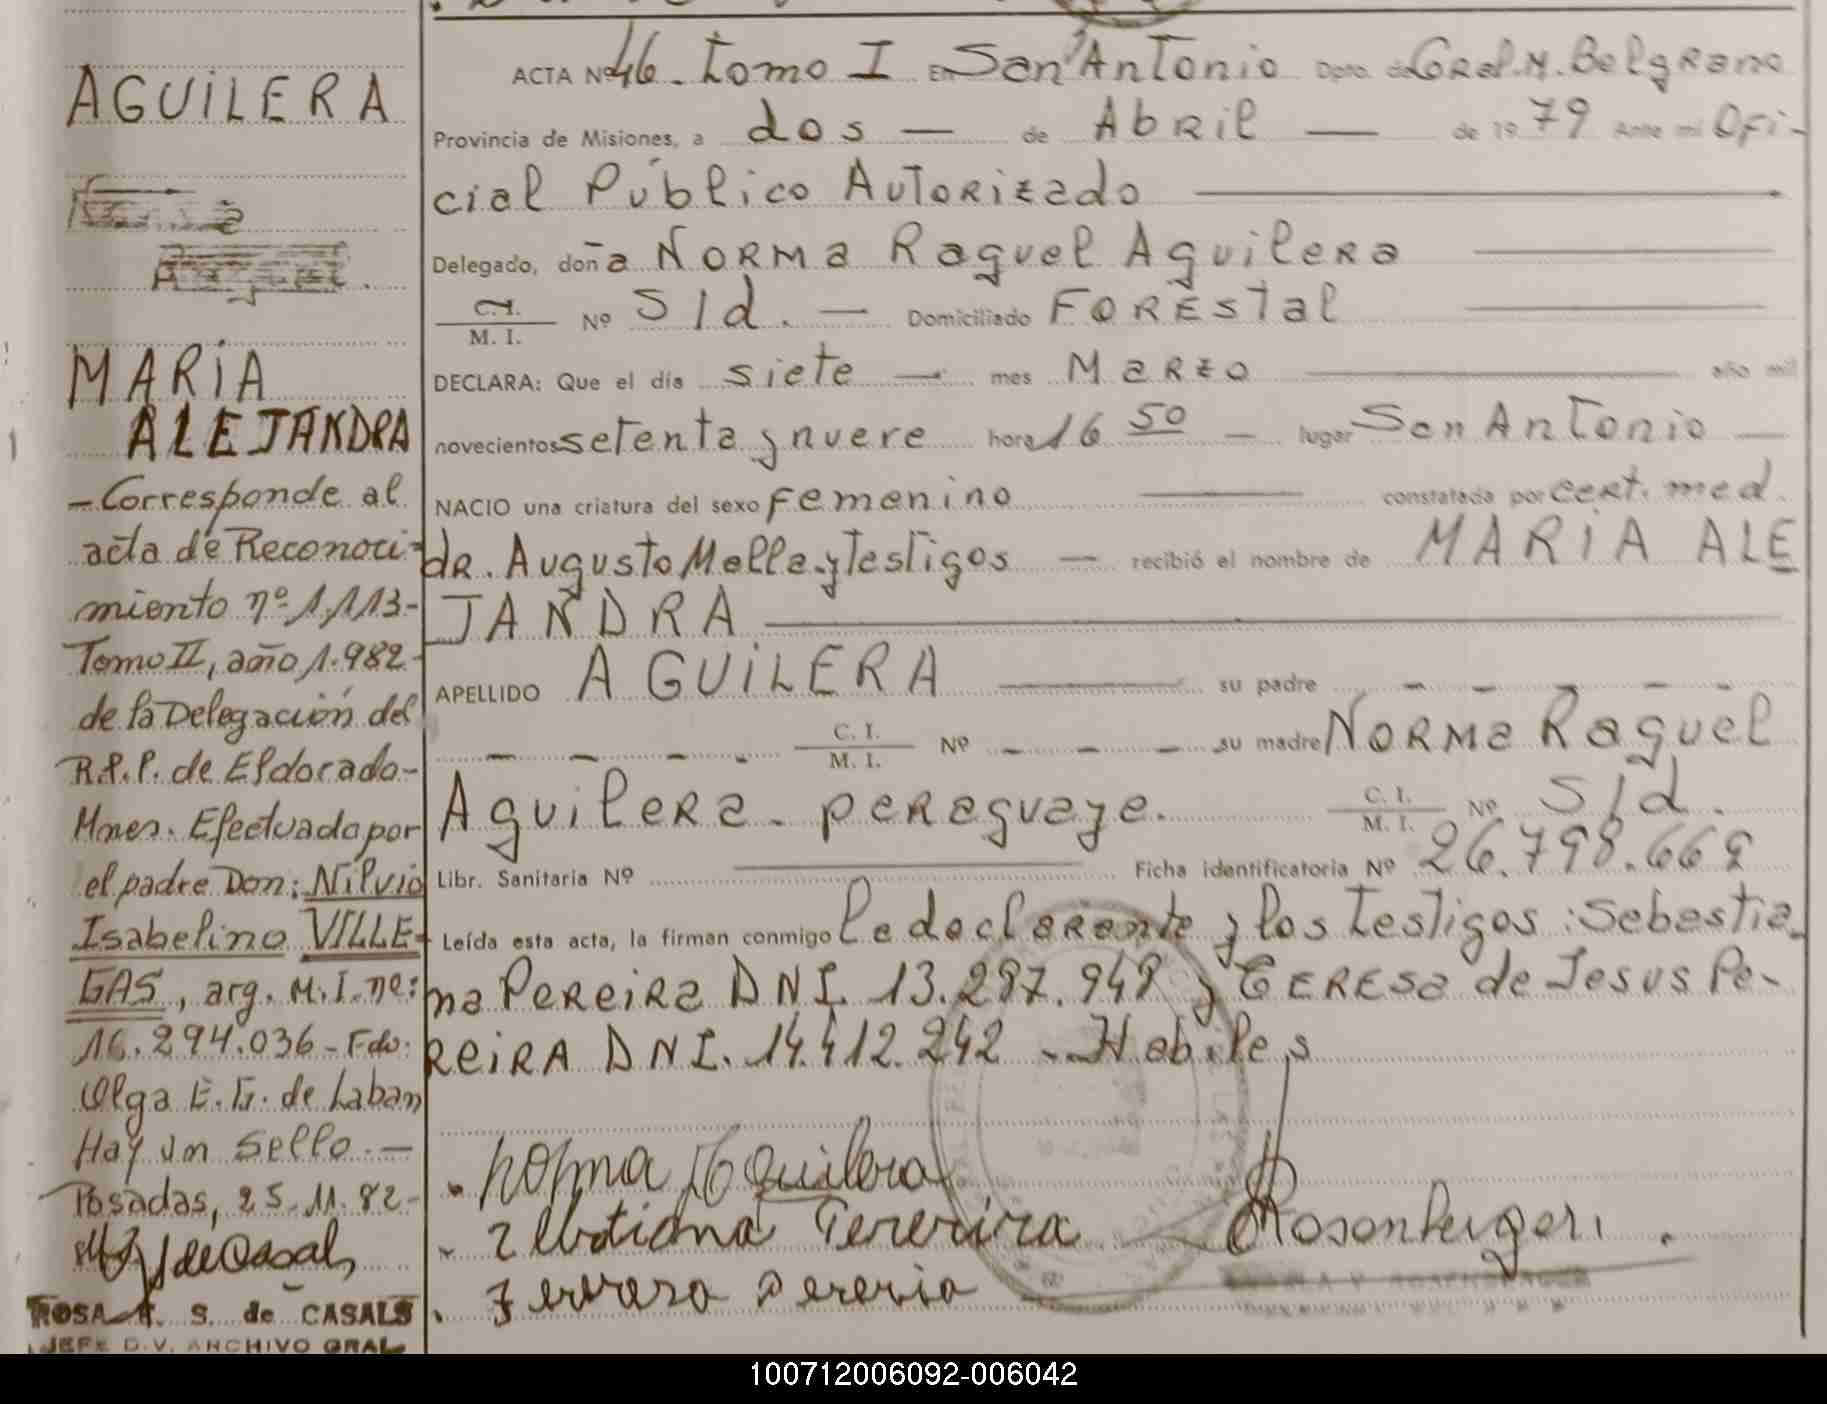 AGUILERA
MARIA
ALEJANDRA
- Corresponde al
acta de Reconoci-
miento nº 1.113-
Tomo II, año 1.982-
de la Delegación del
R.P.P. de Eldorado-
Mnes. Efectuada por
el padre Don: Nilvio
Isabelino VILLE-
GAS, arg. M.I. nº:
16.294.036 - Fdo:
Olga E. G. de Laban
Hay un Sello. -
Posadas, 25.11.82-
ROSA H. S. de CASALS
JEFE D.V. ARCHIVO GRAL
ACTA Nº 46. Tomo I En San Antonio Dpto. de Gral. M. Belgrano
Provincia de Misiones, a dos - de Abril - de 1979 Ante mi Ofi-
cial Público Autorizado
Delegado, doña Norma Raquel Aguilera
C.I. M. I. Nº S/d. - Domiciliado Forestal
DECLARA: Que el día siete - mes Marzo año mil
novecientos setenta y nueve hora 16 50 - lugar San Antonio -
NACIO una criatura del sexo Femenino constatada por cert. med.
dr. Augusto Molla y Testigos - recibió el nombre de MARIA ALE
JANDRA
APELLIDO AGUILERA su padre - - - - -
- - - - C. I. M. I. Nº - - - su madre Norma Raquel
Aguilera - paraguaya. C. I. M. I. Nº S/d.
Libr. Sanitaria Nº Ficha identificatoria Nº 26.798.669
Leída esta acta, la firman conmigo la declarante y los Testigos: Sebastia-
na Pereira DNI. 13.287.948 y Teresa de Jesus Pe-
reira DNI. 14.412.242 - Habiles
Norma R Aguilera
Rosenberger
100712006092-006042